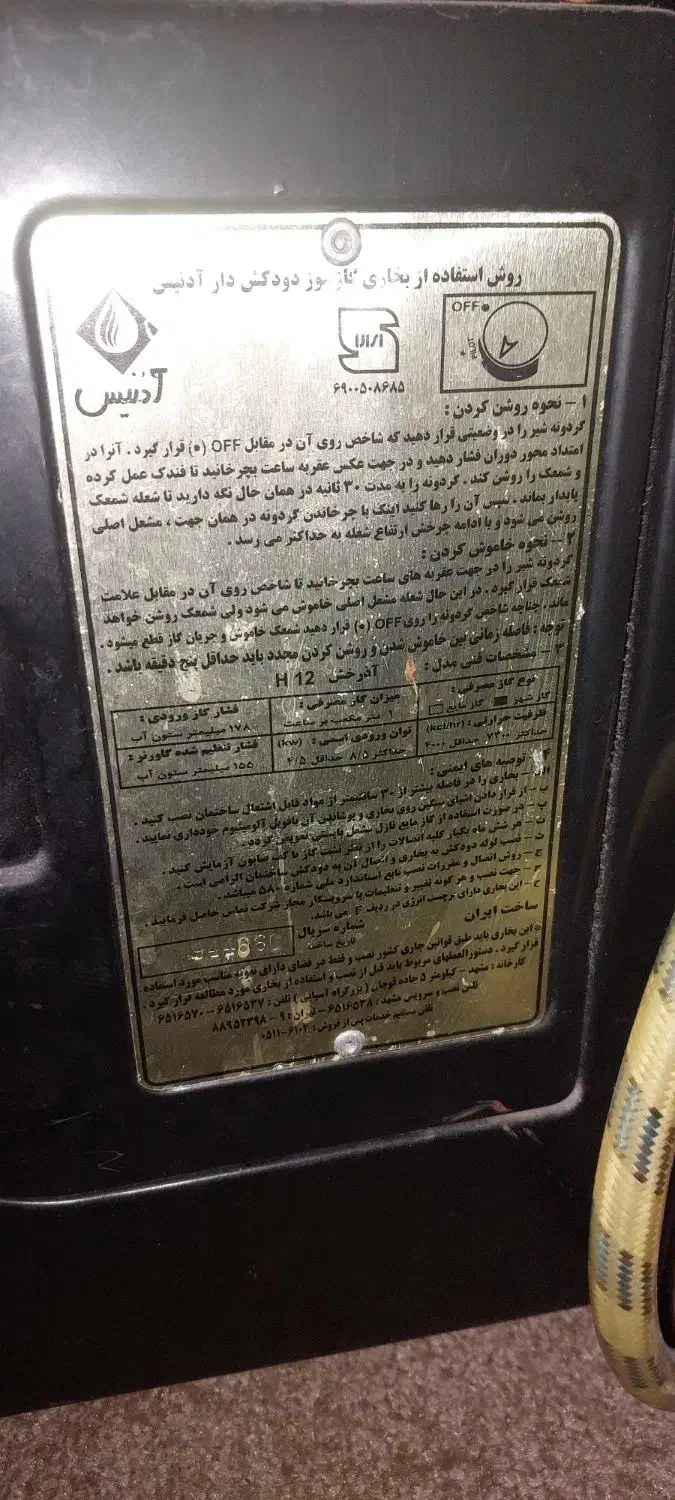 روش استفاده از بخاری گاز سوز دودکش دار آدنیس
OFF
PILOT
آدنیس
۶۹۰۰۵۰۸۶۸۵
۱ – نحوه روشن کردن :
گردونه شیر را در وضعیتی قرار دهید که شاخص روی آن در مقابل OFF (●) قرار گیرد . آنرا در
امتداد محور دوران فشار دهید و در جهت عکس عقربه ساعت بچرخانید تا فندک عمل کرده
و شمعک را روشن کند . گردونه را به مدت ۳۰ ثانیه در همان حال نگه دارید تا شعله شمعک
پایدار بماند . سپس آن را رها کنید اینک با چرخاندن گردونه در همان جهت ، مشعل اصلی
روشن می شود و با ادامه چرخش ارتفاع شعله به حداکثر می رسد .
۲ – نحوه خاموش کردن :
گردونه شیر را در جهت عقربه های ساعت بچرخانید تا شاخص روی آن در مقابل علامت
شمعک قرار گیرد . در این حال شعله مشعل اصلی خاموش می شود ولی شمعک روشن خواهد
ماند . چناچه شاخص گردونه را روی OFF (●) قرار دهید شمعک خاموش و جریان گاز قطع میشود .
توجه : فاصله زمانی بین خاموش شدن و روشن کردن مجدد باید حداقل پنج دقیقه باشد .
۳ – مشخصات فنی مدل : آذرخش H 12
نوع گاز مصرفی : میزان گاز مصرفی : فشار گاز ورودی :
گاز شهر گاز مایع ۱ متر مکعب بر ساعت ۱۷۸ میلیمتر ستون آب
ظرفیت حرارتی : (kcl/hr) توان ورودی اسمی : (kw) فشار تنظیم شده گاورنر :
حداکثر ۷۳۰۰ حداقل ۴۰۰۰ حداکثر ۸/۵ حداقل ۴/۵ ۱۵۵ میلیمتر ستون آب
۴ – توصیه های ایمنی :
الف – بخاری را در فاصله بیشتر از ۳۰ سانتیمتر از مواد قابل اشتعال ساختمان نصب کنید .
ب – از قرار دادن اشیای سنگین روی بخاری و پوشاندن آن با فویل آلومینیوم خودداری نمایید .
پ – در صورت استفاده از گاز مایع نازل مشعل بایستی تعویض گردد .
ت – هر شش ماه یکبار کلیه اتصالات را از نظر نشت گاز با کف صابون آزمایش کنید .
ث – نصب لوله دودکش به بخاری و اتصال آن به دودکش ساختمان الزامی است .
ج – روش اتصال و مقررات نصب تابع استاندارد ملی شماره ۵۸۰ میباشد .
چ – جهت نصب و هر گونه تغییر و تنظیمات با سرویسکار مجاز شرکت تماس حاصل فرمایید .
ح – این بخاری دارای برچسب انرژی در ردیف F می باشد.
ساخت ایران
شماره سریال
تاریخ ساخت
این بخاری باید طبق قوانین جاری کشور نصب و فقط در فضای دارای تهویه مناسب مورد استفاده
قرار گیرد . دستورالعملهای مربوط باید قبل از نصب و استفاده از بخاری مورد مطالعه قرار گیرد .
کارخانه : مشهد – کیلومتر ۵ جاده قوچان ( بزرگراه آسیایی ) تلفن : ۶۵۱۶۵۳۷ – ۶۵۱۶۵۷۰
تلفن نصب و سرویس مشهد : ۶۵۱۶۵۳۸ – تهران : ۹ – ۸۸۹۵۲۳۹۸
تلفن مستقیم خدمات پس از فروش : ۶۱۰۲-۰۵۱۱